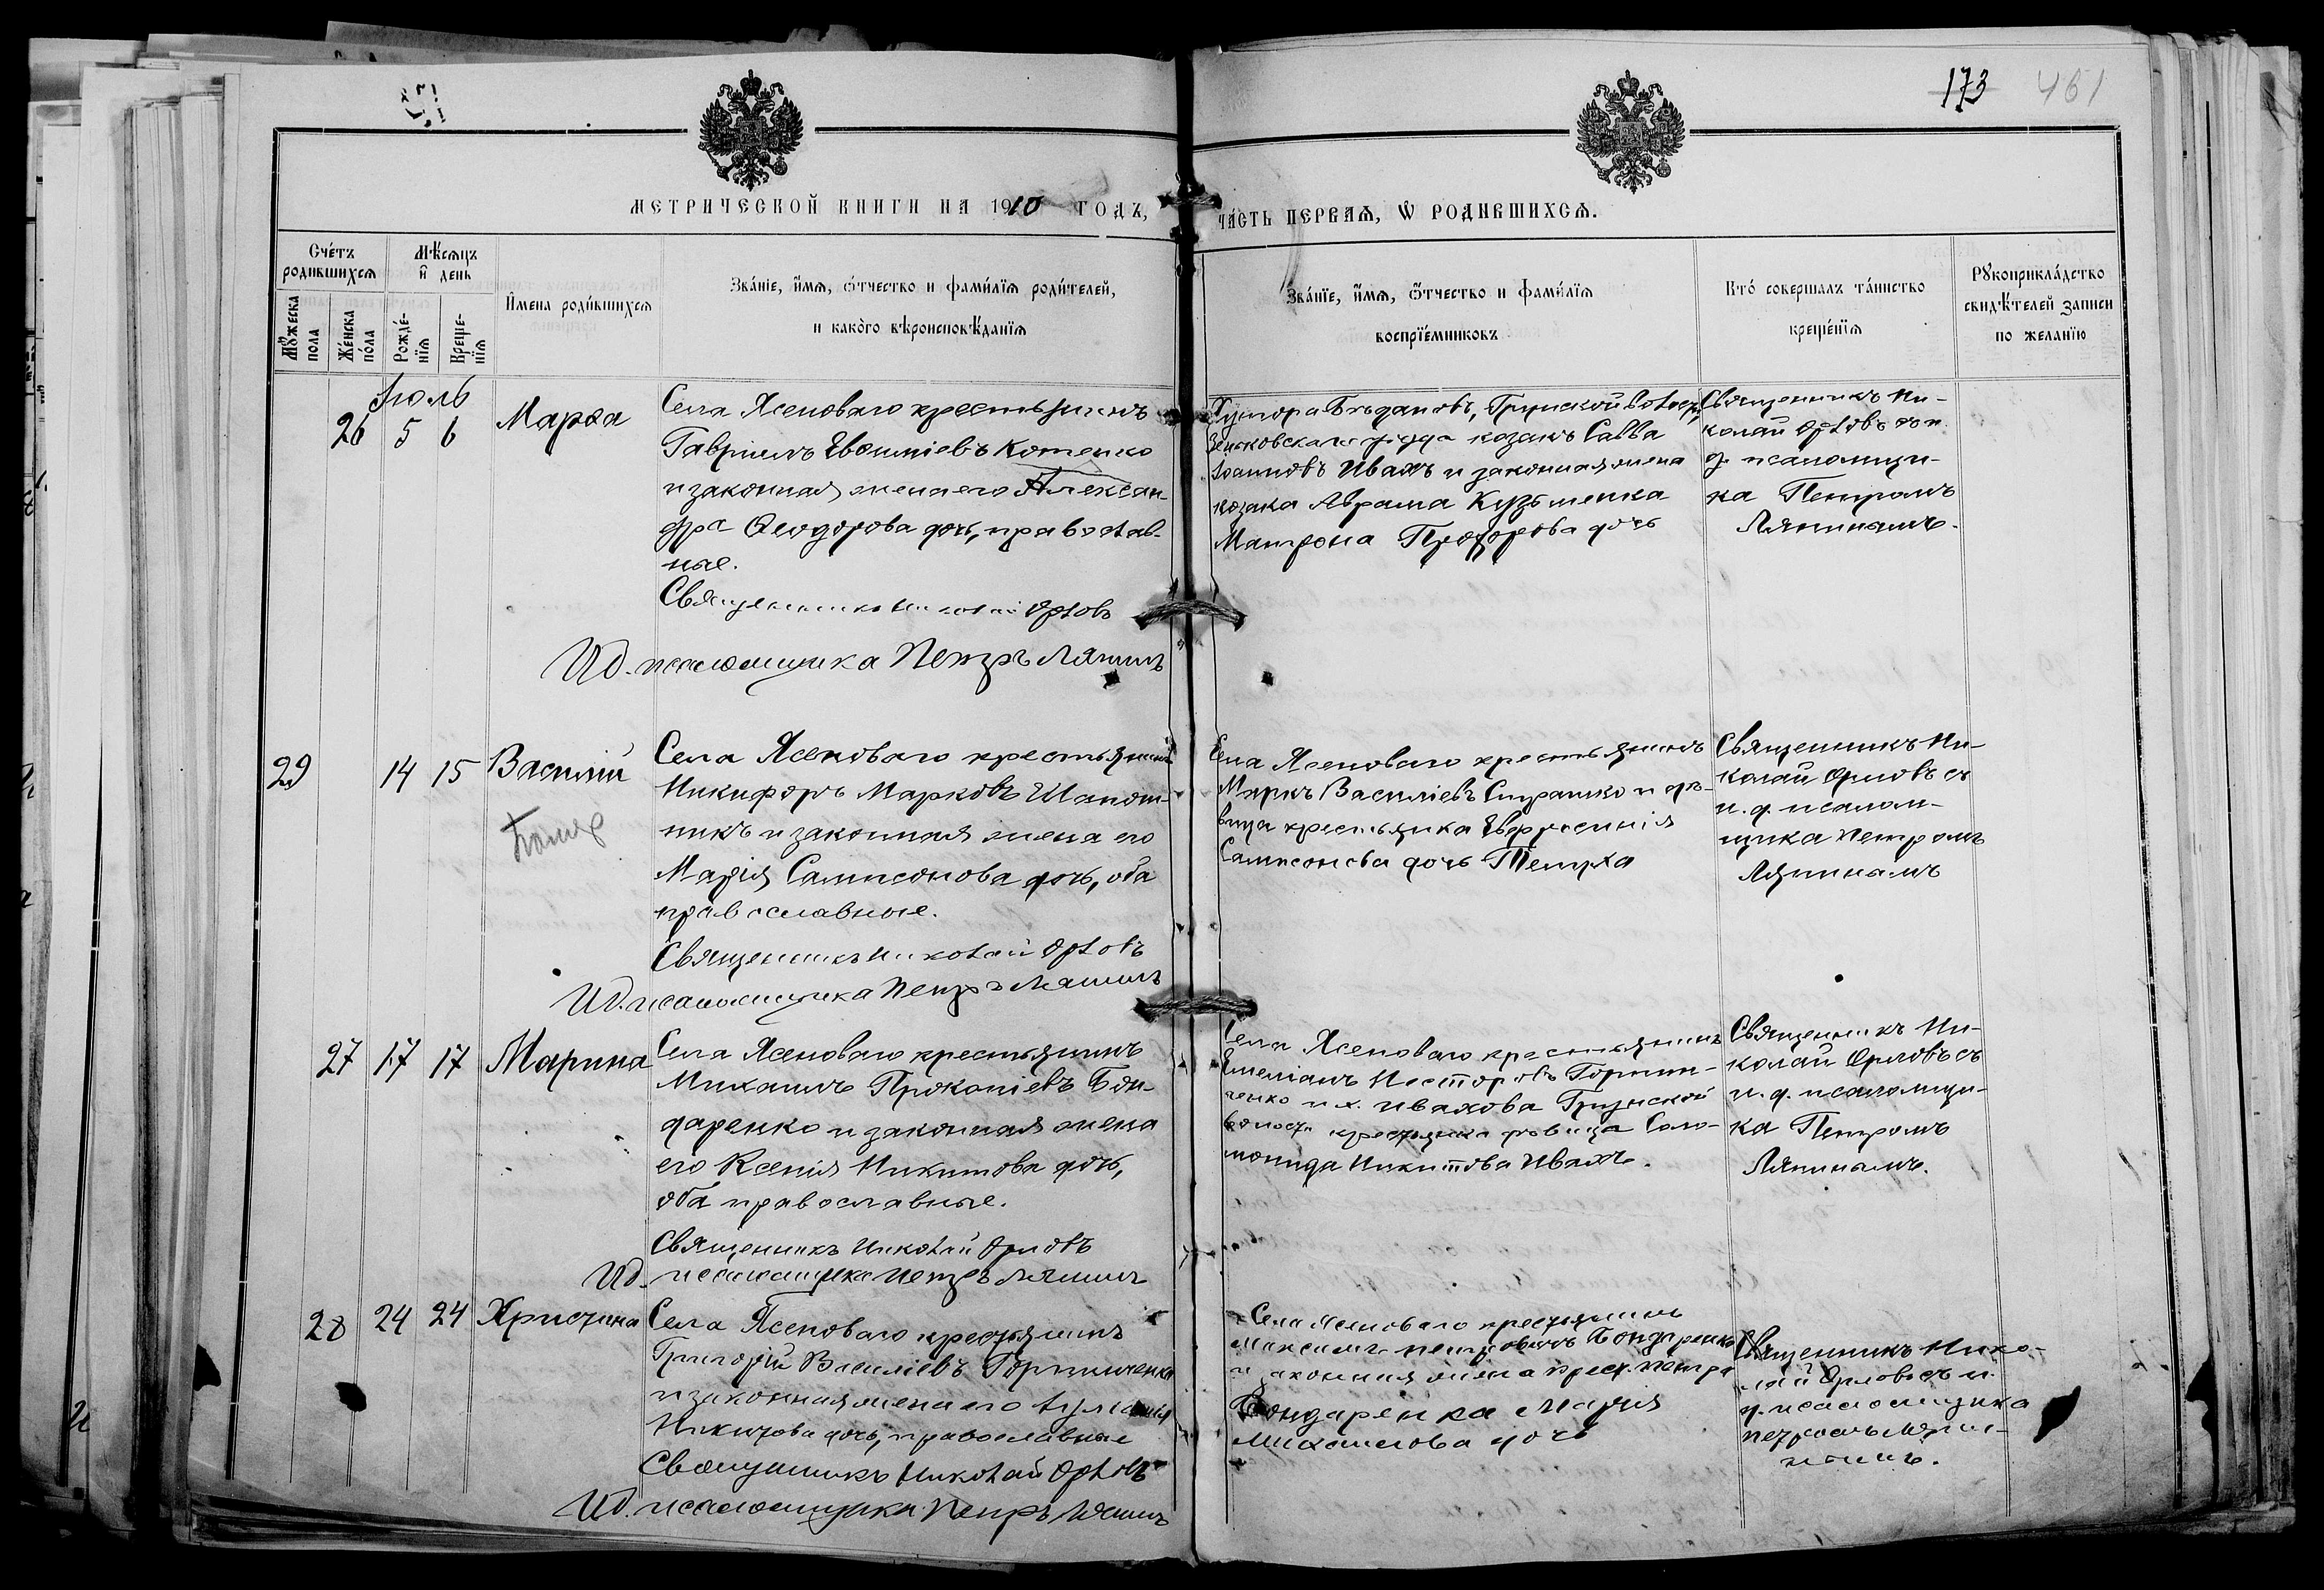 173 461
МЕТРИЧЕСКОЙ КНИГИ НА 1910 ГОДЪ,
ЧА́СТЬ ПЕРВАѦ, Ѡ҆ РОДИВШИХСѦ.
Сче́тъ родившихсѧ
Мѹжеска пола
Же́нска по́ла
Мѣ́сѧцъ и҆ день
Рожде́нїѧ
Креще́нїѧ
И҆мена роди́вшихсѧ
Зва́нїе, и҆́мѧ, ѻ҆́тчество и фами́лїѧ роди́телей,
и како́го вѣроисповѣ́данїѧ
Зва́нїе, и҆́мѧ, ѻ҆́тчество и фами́лїѧ
воспрїе́мниковъ
Кто́ совершалъ та́инство
креще́нїѧ
Рѹкоприкла́дство
свидѣ́телей записи
по желанїю
Іюль
26 5 6 Марѳа
Села Ясеноваго крестьянинъ
Гавріилъ Евѳиміевъ Котенко
и законная жена его Алексан-
дра Ѳеодорова дочь, православ-
ные.
Священникъ Николай Орловъ
И.д. псаломщика Петръ Ляпинъ
Хутора Богдановъ, Грунской волости,
Зеньковскаго уѣзда козакъ Савва
Іоанновъ Ивахъ и законная жена
козака Аврама Кузьменка
Матрона Прохорова дочь
Священникъ Ни-
колай Орловъ съ и.
д. псаломщи-
ка Петромъ
Ляпинымъ.
29 14 15 Василій
Села Ясеноваго крестьянинъ
Никифоръ Марковъ Шапош-
никъ и законная жена его
Марія Сампсонова дочь, оба
православные.
Священникъ Николай Орловъ
И.д. псаломщика Петръ Ляпинъ
Села Ясеноваго крестьянинъ
Маркъ Василіевъ и дѣ-
вица крестьянка Евфросинія
Сампсонова дочь
Священникъ Ни-
колай Орловъ съ
и. д. псалом-
щика Петромъ
Ляпинымъ
27 17 17 Марина
Села Ясеноваго крестьянинъ
Михаилъ Прокопіевъ Бон-
даренко и законная жена
его Ксенія Никитова дочь,
оба православные.
Священникъ Николай Орловъ
И.д. псаломщика Петръ Ляпинъ
Села Ясеноваго крестьянинъ
Емеліанъ Несторовъ Горпин-
ченко и х. Ивахова Грунской
волости крестьянка дѣвица Соло-
монида Никитова Ивахъ.
Священникъ Ни-
колай Орловъ съ
и. д. псаломщи-
ка Петромъ
Ляпинымъ.
28 24 24 Христина
Села Ясеноваго крестьянинъ
Григорій Василіевъ Горпинченко
и законная жена его
Никитова дочь, православные
Священникъ Николай Орловъ
И.д. псаломщика Петръ Ляпинъ
Села Ясеноваго крестьянинъ
Максимъ Петровичъ Бондаренко
и законная жена крест. Петра
Бондаренка Марія
Михаилова дочь
Священникъ Нико-
лай Орловъ съ и.
д. псаломщика
Петромъ Ляпи-
нымъ.